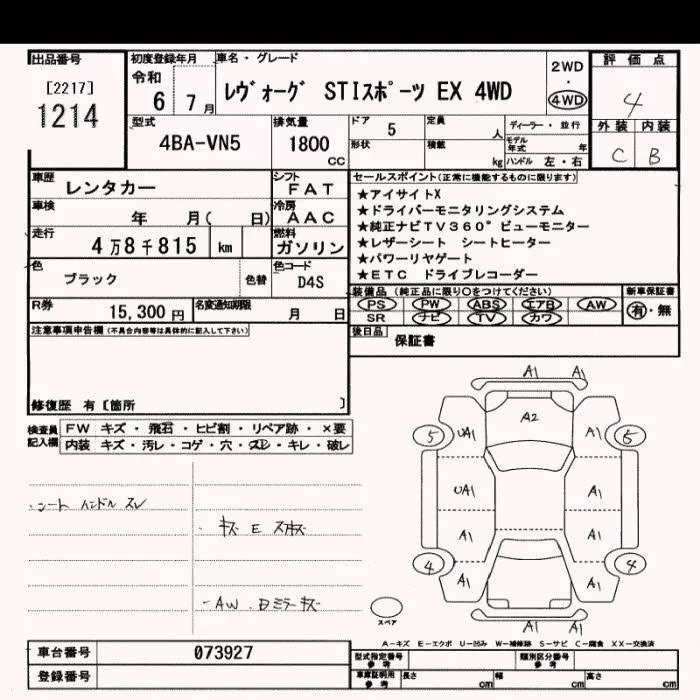 出品番号
[2217]
1214
初度登録年月
令和
6 7月
車名・グレード
ﾚｳﾞｫｰｸﾞ STIｽﾎﾟｰﾂ EX 4WD
2WD
・
4WD
評価点
4
外装 内装
C B
型式
4BA-VN5
排気量
1800
CC
ドア
5
形状
定員
人
積載
kg
ディーラー・並行
モデル年式 年
ハンドル 左・右
車歴
レンタカー
シフト
FAT
車検
年 月( 日)
冷房
AAC
走行
4万8千815 km
燃料
ガソリン
色
ブラック
色替
色コード
D4S
R券
15,300 円
名変通知期限
月 日
セールスポイント(正常に機能するものに限ります)
★アイサイトX
★ドライバーモニタリングシステム
★純正ナビTV360°ビューモニター
★レザーシート シートヒーター
★パワーリヤゲート
★ETC ドライブレコーダー
装備品 (純正品に限り〇をつけてください)
PS PW ABS エアB AW
SR ナビ TV カワ
新車保証書
有・無
後日品
保証書
注意事項申告欄(不具合内容等は具体的に記入して下さい)
修復歴 有〔箇所 〕
検査員
記入欄
FW キズ・飛石・ヒビ割・リペア跡・×要
内装 キズ・汚レ・コゲ・穴・スレ・キレ・破レ
・シート ハンドル スレ
・キズ E スキズ
・AW. Dミラーキズ
A1 A1
A2
5 UA1 A1 5
UA1 A1
A1 A1
4 A1 A1 4
A1 A1
スペア
A−キズ E−エクボ U−凹み W−補修跡 S−サビ C−腐食 XX−交換済
車台番号
073927
登録番号
型式指定番号
参考
類別区分番号
参考
車庫証明用
参考
長さ cm
幅 cm
高さ cm